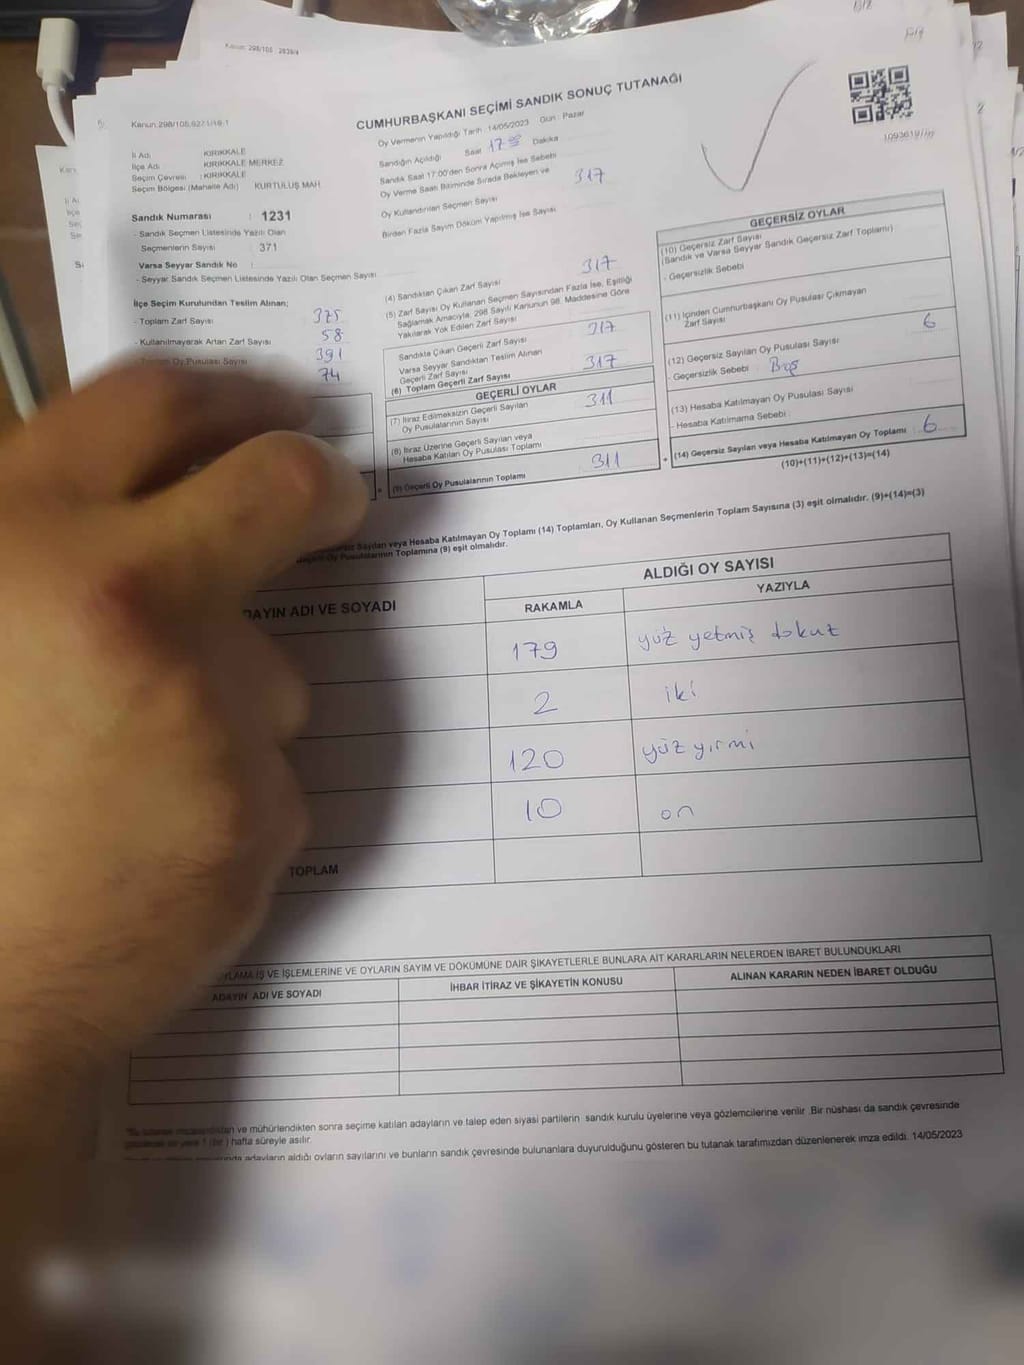 Kanun: 298/105
CUMHURBAŞKANI SEÇİMİ SANDIK SONUÇ TUTANAĞI
Oy Vermenin Yapıldığı Tarih : 14/05/2023 Gün : Pazar
Sandığın Açıldığı Saat 17:00 Dakika
Sandık Saat 17:00'den Sonra Açımış İse Sebebi
Oy Verme Saati Bitiminde Sırada Bekleyen ve
Oy Kullandırılan Seçmen Sayısı
317
Birden Fazla Sayım Döküm Yapılmış İse Sayısı
İl Adı : KIRIKKALE
İlçe Adı : KIRIKKALE MERKEZ
Seçim Çevresi : KIRIKKALE
Seçim Bölgesi (Mahalle Adı) KURTULUŞ MAH.
Sandık Numarası : 1231
- Sandık Seçmen Listesinde Yazılı Olan
Seçmenlerin Sayısı : 371
Varsa Seyyar Sandık No :
- Seyyar Sandık Seçmen Listesinde Yazılı Olan Seçmen Sayısı
İlçe Seçim Kurulundan Teslim Alınan;
- Toplam Zarf Sayısı 375
- Kullanılmayarak Artan Zarf Sayısı 58
Oy Pusulası Sayısı 391
74
(4) Sandıktan Çıkan Zarf Sayısı 317
(5) Zarf Sayısı Oy Kullanan Seçmen Sayısından Fazla İse, Eşitliği
Sağlamak Amacıyla; 298 Sayılı Kanunun 98. Maddesine Göre
Yakılarak Yok Edilen Zarf Sayısı
Sandıkta Çıkan Geçerli Zarf Sayısı 317
Varsa Seyyar Sandıktan Teslim Alınan
Geçerli Zarf Sayısı
(6) Toplam Geçerli Zarf Sayısı 317
GEÇERLİ OYLAR
(7) İtiraz Edilmeksizin Geçerli Sayılan
Oy Pusulalarının Sayısı 311
(8) İtiraz Üzerine Geçerli Sayılan veya
Hesaba Katılan Oy Pusulası Toplamı
(9) Geçerli Oy Pusulalarının Toplamı 311
GEÇERSİZ OYLAR
(10) Geçersiz Zarf Sayısı
(Sandık ve Varsa Seyyar Sandık Geçersiz Zarf Toplamı)
- Geçersizlik Sebebi
(11) İçinden Cumhurbaşkanı Oy Pusulası Çıkmayan
Zarf Sayısı
(12) Geçersiz Sayılan Oy Pusulası Sayısı 6
- Geçersizlik Sebebi : Boş
(13) Hesaba Katılmayan Oy Pusulası Sayısı
- Hesaba Katılmama Sebebi
(14) Geçersiz Sayılan veya Hesaba Katılmayan Oy Toplamı 6
(10)+(11)+(12)+(13)=(14)
Sayılan veya Hesaba Katılmayan Oy Toplamı (14) Toplamları, Oy Kullanan Seçmenlerin Toplam Sayısına (3) eşit olmalıdır. (9)+(14)=(3)
Oy Pusulalarının Toplamına (9) eşit olmalıdır.
ADAYIN ADI VE SOYADI
ALDIĞI OY SAYISI
RAKAMLA YAZIYLA
179 yüz yetmiş dokuz
2 iki
120 yüz yirmi
10 on
TOPLAM
İŞ VE İŞLEMLERİNE VE OYLARIN SAYIM VE DÖKÜMÜNE DAİR ŞİKAYETLERLE BUNLARA AİT KARARLARIN NELERDEN İBARET BULUNDUKLARI
ADAYIN ADI VE SOYADI
İHBAR İTİRAZ VE ŞİKAYETİN KONUSU
ALINAN KARARIN NEDEN İBARET OLDUĞU
ve mühürlendikten sonra seçime katılan adayların ve talep eden siyasi partilerin sandık kurulu üyelerine veya gözlemcilerine verilir. Bir nüshası da sandık çevresinde
hafta süreyle asılır.
adayların aldığı oyların sayılarını ve bunların sandık çevresinde bulunanlara duyurulduğunu gösteren bu tutanak tarafımızdan düzenlenerek imza edildi. 14/05/2023